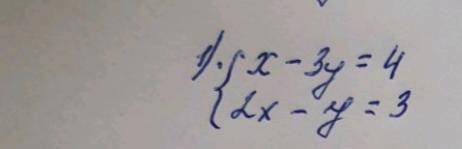 1). { x - 3y = 4
{ 2x - y = 3